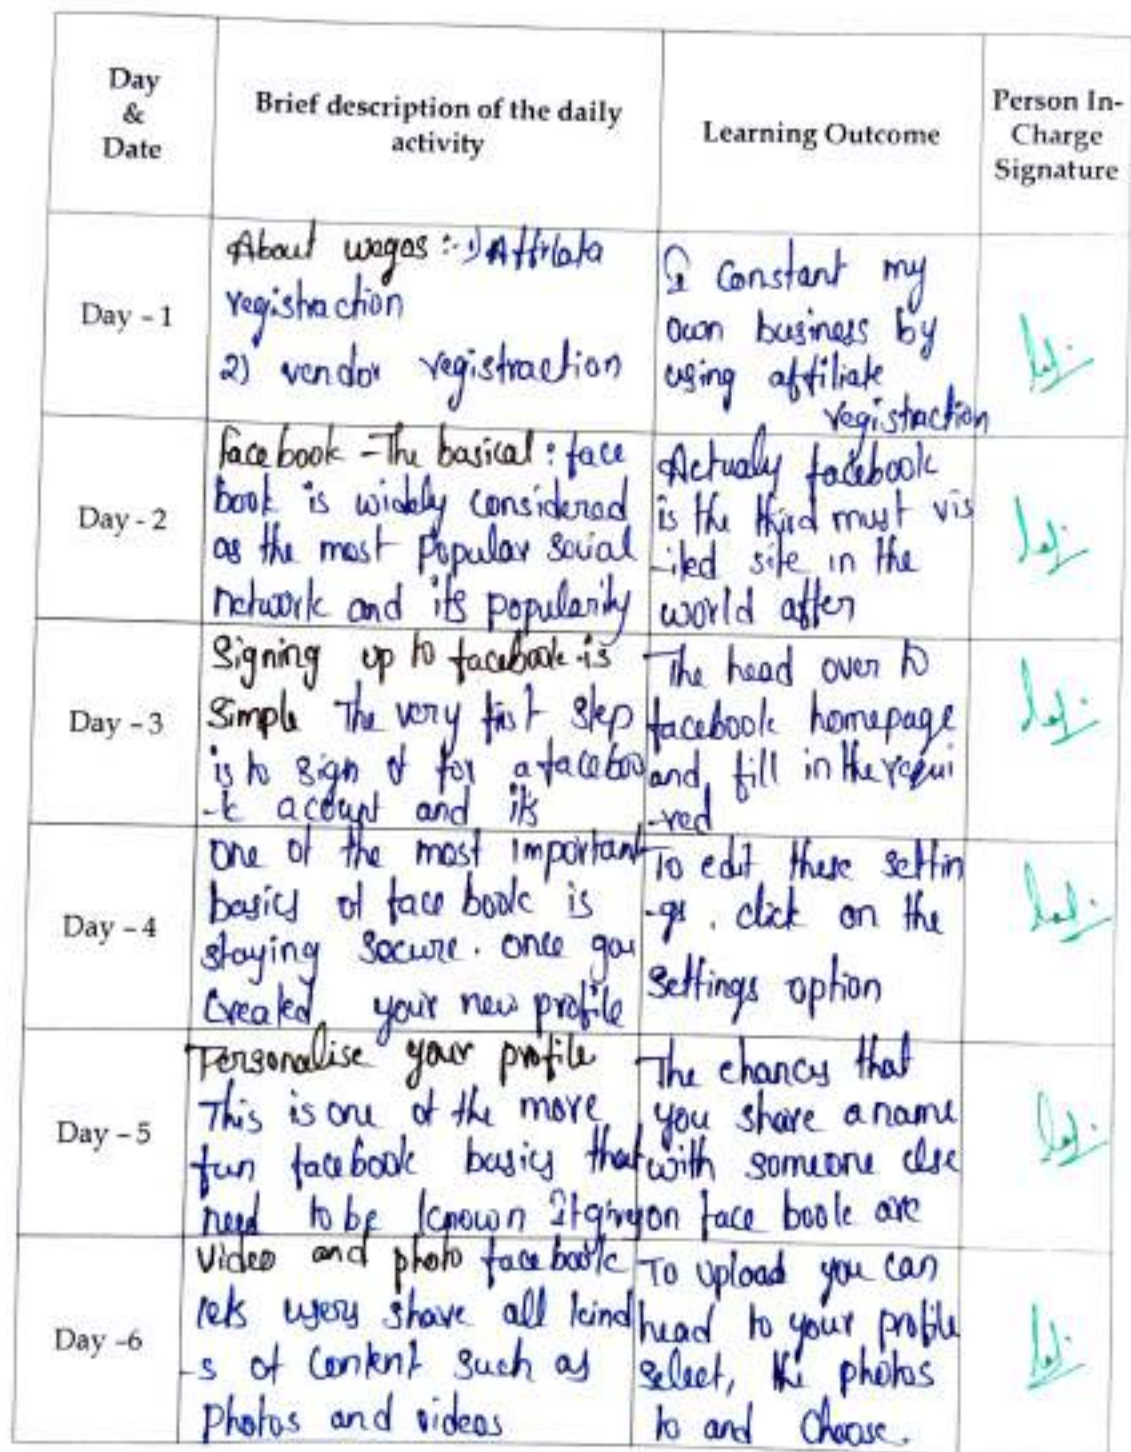 Day
&
Date
Brief description of the daily
activity
Learning Outcome
Person In-
Charge
Signature
Day - 1
About wegos :- 1) Affilata
registraction
2) vendor registraction
I Constant my
own business by
using affiliate
registraction
Day - 2
facebook - The basical : face
book is widely considerad
as the most Popular Social
network and its popularity
Actualy facebook
is the third must vis
-ited site in the
world after
Day - 3
Signing up to facebook is
Simple The very first step
is to sign of for a faceboo
-k acount and its
The head over to
facebook homepage
and, fill in the requi
-red
Day - 4
One of the most important
basics of face book is
staying secure. once you
Created your new profile
To edit these settin
-gs. click on the
Settings option
Day - 5
Personalise your profile
This is one of the more
fun facebook basics that
need to be known It gives
The chances that
you share a name
with someone else
on face book are
Day -6
Video and photo facebook
lets users share all kind
-s of Content such as
Photos and videos
To upload you can
head to your profile
select, the photos
to and Choose.